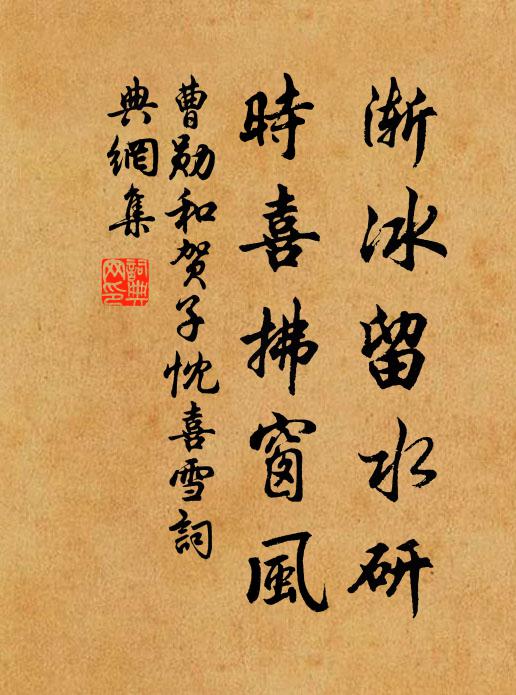 渐冰留水研
時喜拂窗風
曹勋和贺子忱喜雪詞
典網集
詞典网印